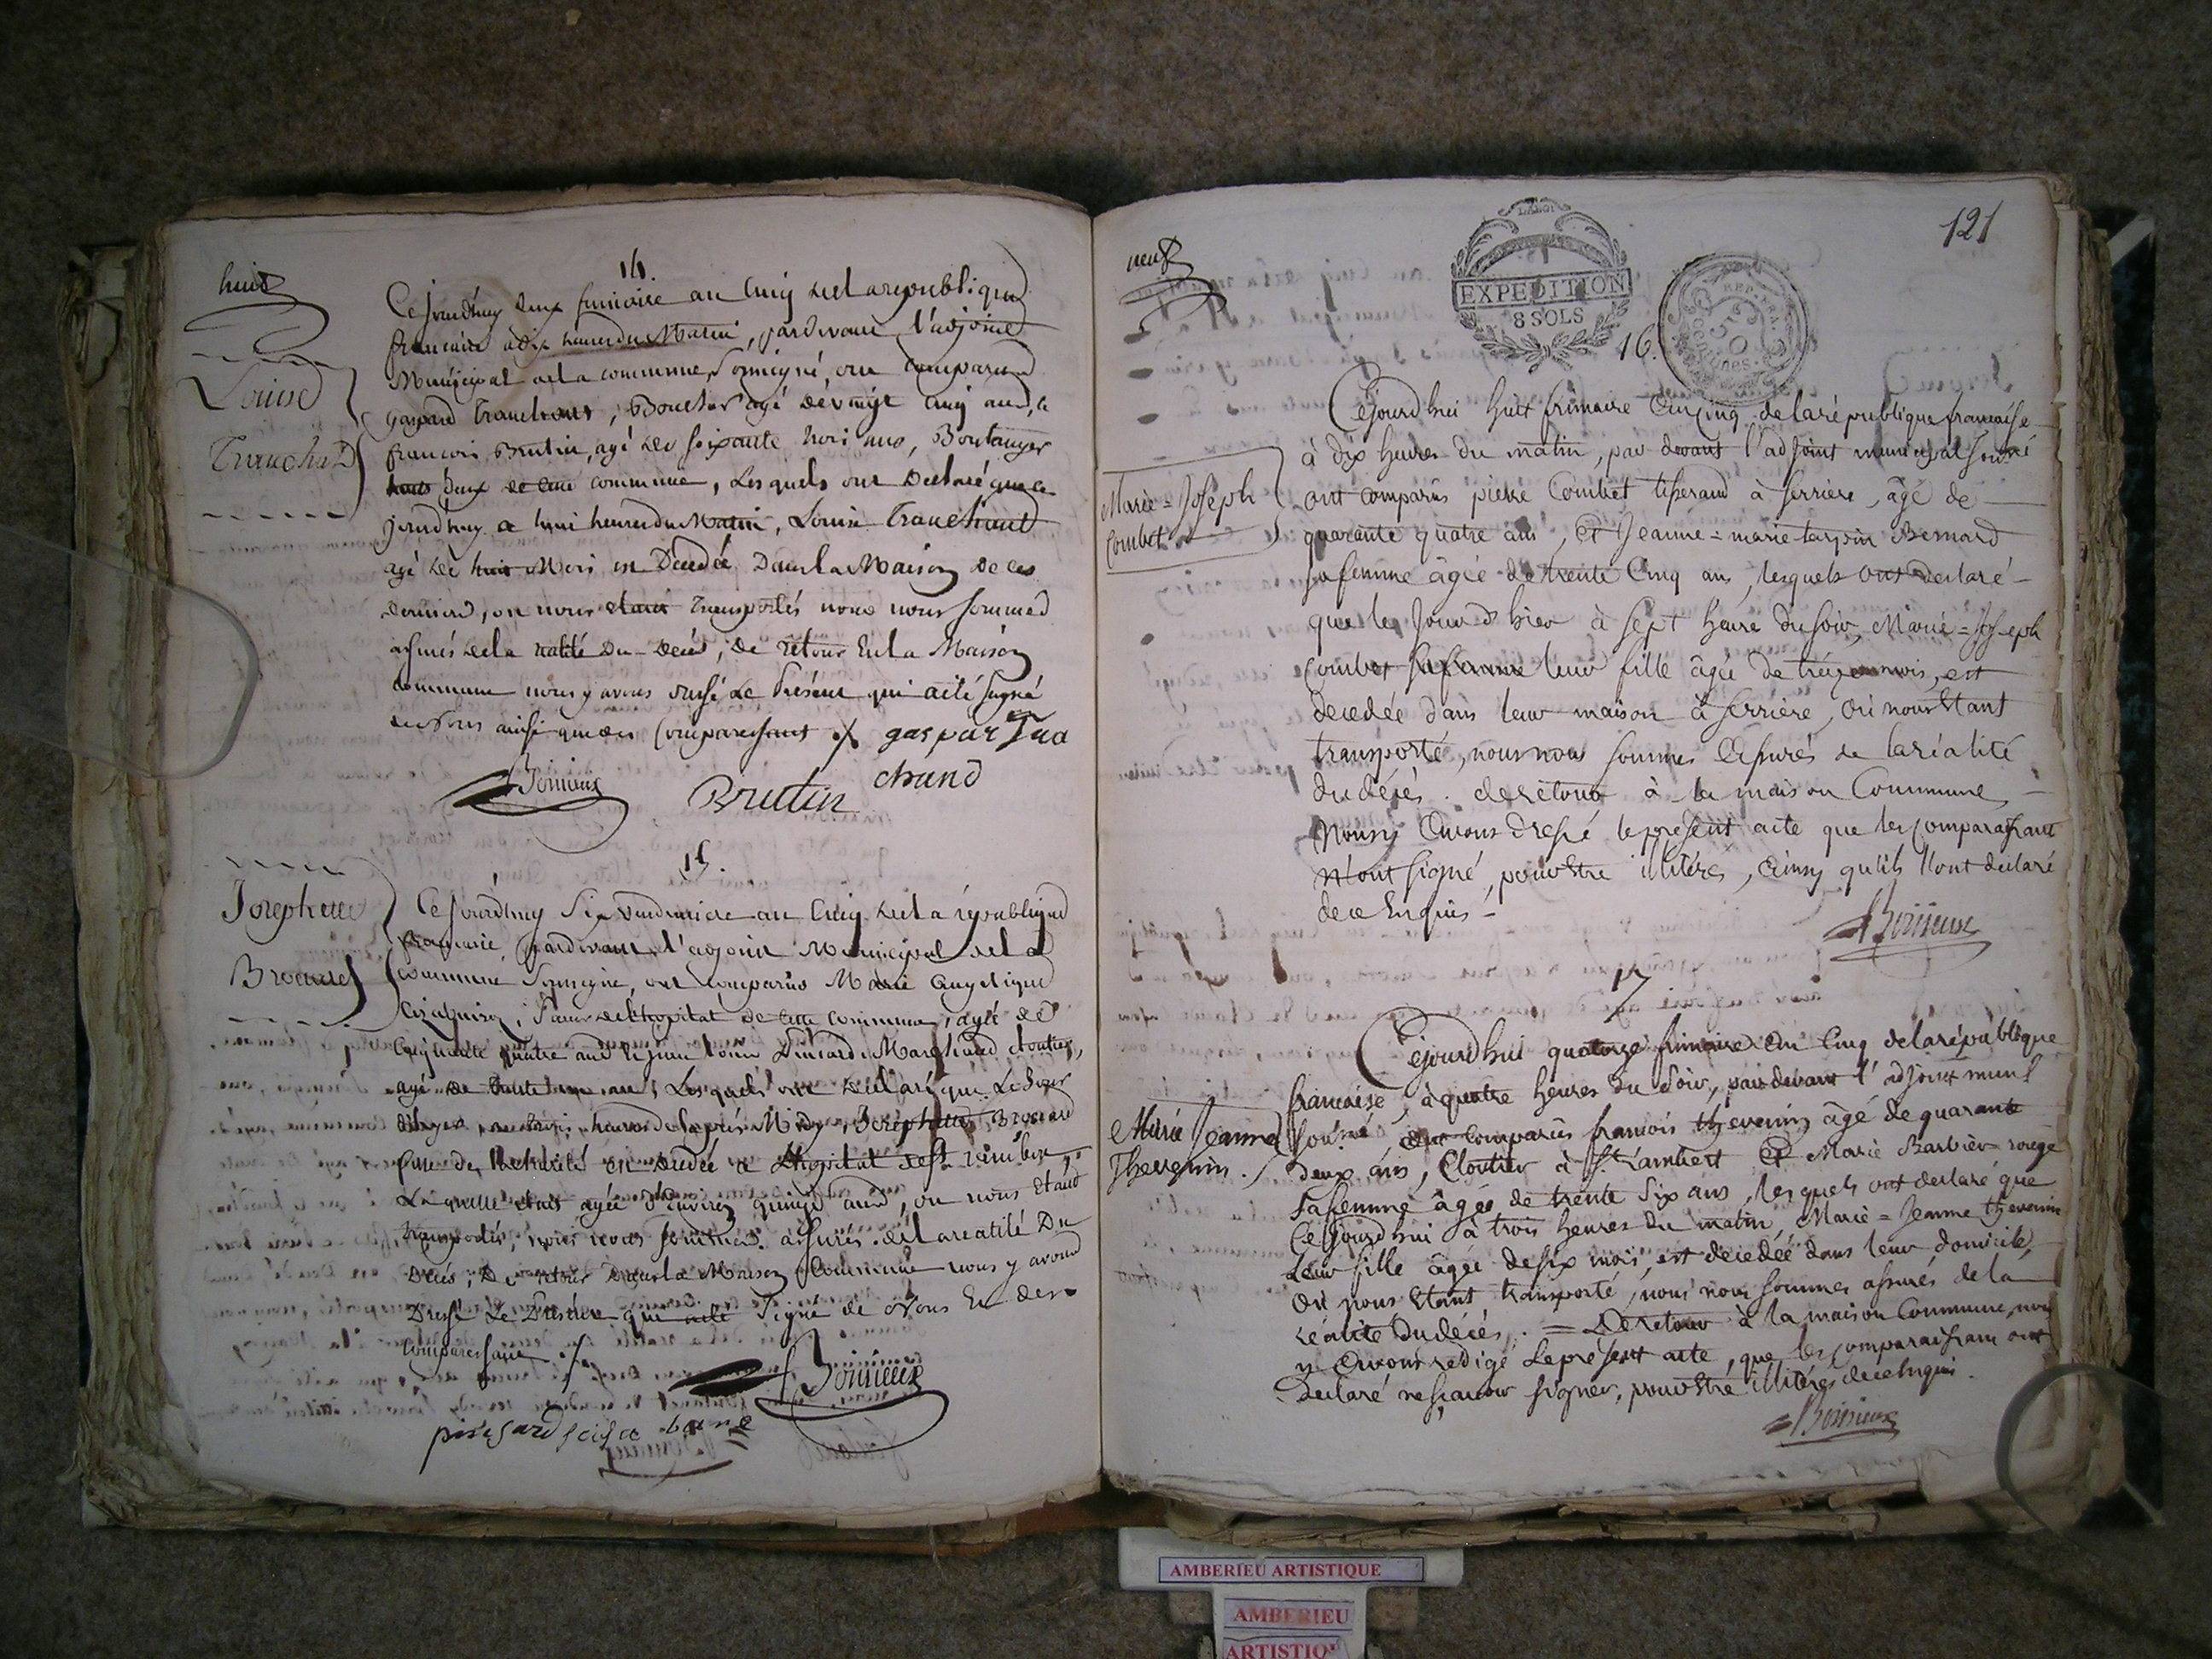 huit
14.
Louise
Trancha
Ce jourd'huy deux frimaire an cinq de la republique
francaise a dix heures du Matin, pardevant l'adjoint
Municipal de la commune, Soussigné, ont comparu
gaspard Tranchant, Boucher agé de vingt cinq ans, et
francois Brutin, agé de soixante trois ans, Boulanger
tous deux de cette commune, Lesquels ont Declaré que ce
jourdhuy a huit heures du Matin, Louise Tranchant
agé de huit Mois est Décedée Dans la Maison de ces
derniers, ou nous etant transportés nous nous sommes
assurés de la réalité Du Decés, De retour En la Maison
commune nous y avons dressé Le Présent qui a eté signé
de Nous ainsi que des Comparessant ./. gaspar Tra
chand
Boissieux
Brutin
15.
Josephette
Ce jourd'huy Six an Cinq de la république
francaise, pardevant l'adjoint Municipal de la
commune Soussigné, ont comparus Marie Angelique
Soeur de l'hopital de cette commune, agée de
Cinquante quatre ans Marchand cloutier,
agé de trente ans, Lesquels ont declaré que Le Jour
d'hyer heures de l'après Midy, Josephette
fille de est decedée a L'hopital de St rambert,
Laquelle etait agée d'Environ quinze ans, ou nous Etant
transportés, nous nous sommes assurés de la realité Du
Décés; De retour Dans la Maison Commune nous y avons
Dressé Le Présent qui a eté Signé de Nous Et des
comparessant ./.
Boissieux
neuf
LA LOI
EXPEDITION
8 SOLS
REP. FRA.
50
Centimes
121
16.
Marie=Joseph
Combet
Cejourd'hui huit frimaire an cinq de la république francaise
à dix heures du matin, par devant l'adjoint municipal sous né
ont comparus pierre Combet tisserand à serriere, âgé de
quarante quatre ans, et Jeanne=marie Bernard
sa femme âgée de trente cinq ans, lesquels ont declaré
que le Jour d'hier à sept heure du soir, Marie=Joseph
Combet sa femme leur fille âgée de treize mois, est
decedée dans leur maison à serrière, où nous Etant
transporté, nous nous sommes assurés de la réalité
du décés. de retour à la maison Commune
Nous y avons dressé le present acte que les comparaissant
N'ont signé, pour Etre illitérés, ainsy qu'ils l'ont declaré
de ce Enquis
Boissieux
17
Marie Jeanne
Thevenin.
Cejourd'hui quatorze frimaire an Cinq de la république
francaise, à quatre heures du soir, par devant l'adjoint mun l
Sou né, ont comparûs francois thevenin âgé de quarante
deux ans, Cloutier à St. Rambert et Marie Barbier=rouge
sa femme âgée de trente Six ans, lesquels ont declaré que
cejourd'hui à trois heures du matin, Marie=Jeanne thevenin
Leur fille âgée de six mois, est decedée dans leur domicile,
Où nous Etant transporté, nous nous sommes assurés de la
réalité du décés. = De retour à la maison Commune, nous
y avons redigé Le present acte, que les comparaissant ont
declaré ne sçavoir signer, pour Etre illitérés de ce Enquis.
Boissieux
AMBERIEU ARTISTIQUE
AMBERIEU
ARTISTIQ